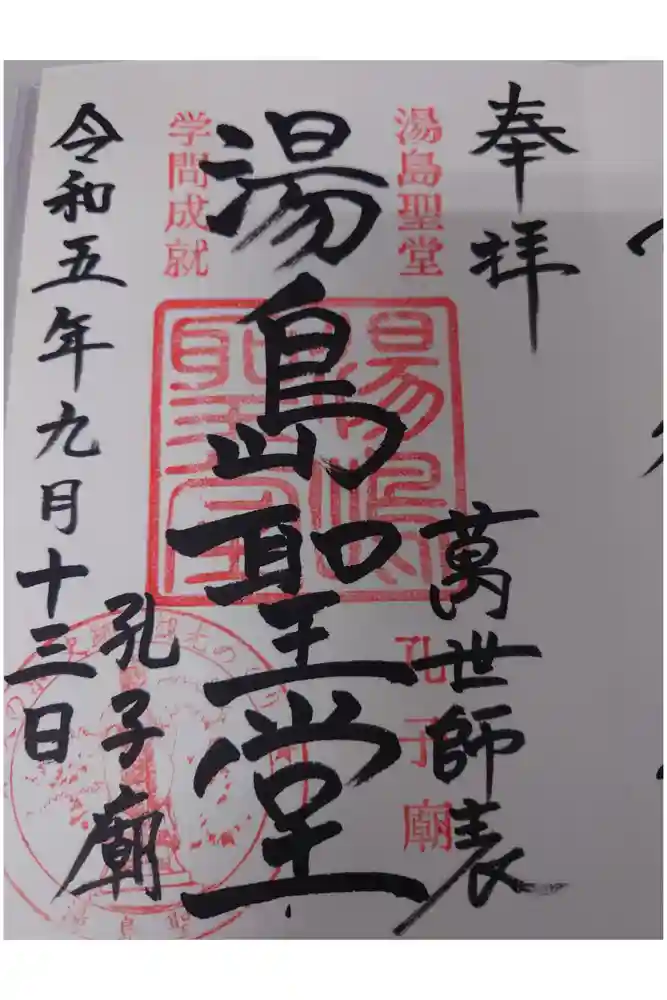 奉拝
湯島聖堂
萬世師表
孔子廟
湯島聖堂
学問成就
孔子廟
令和五年九月十三日